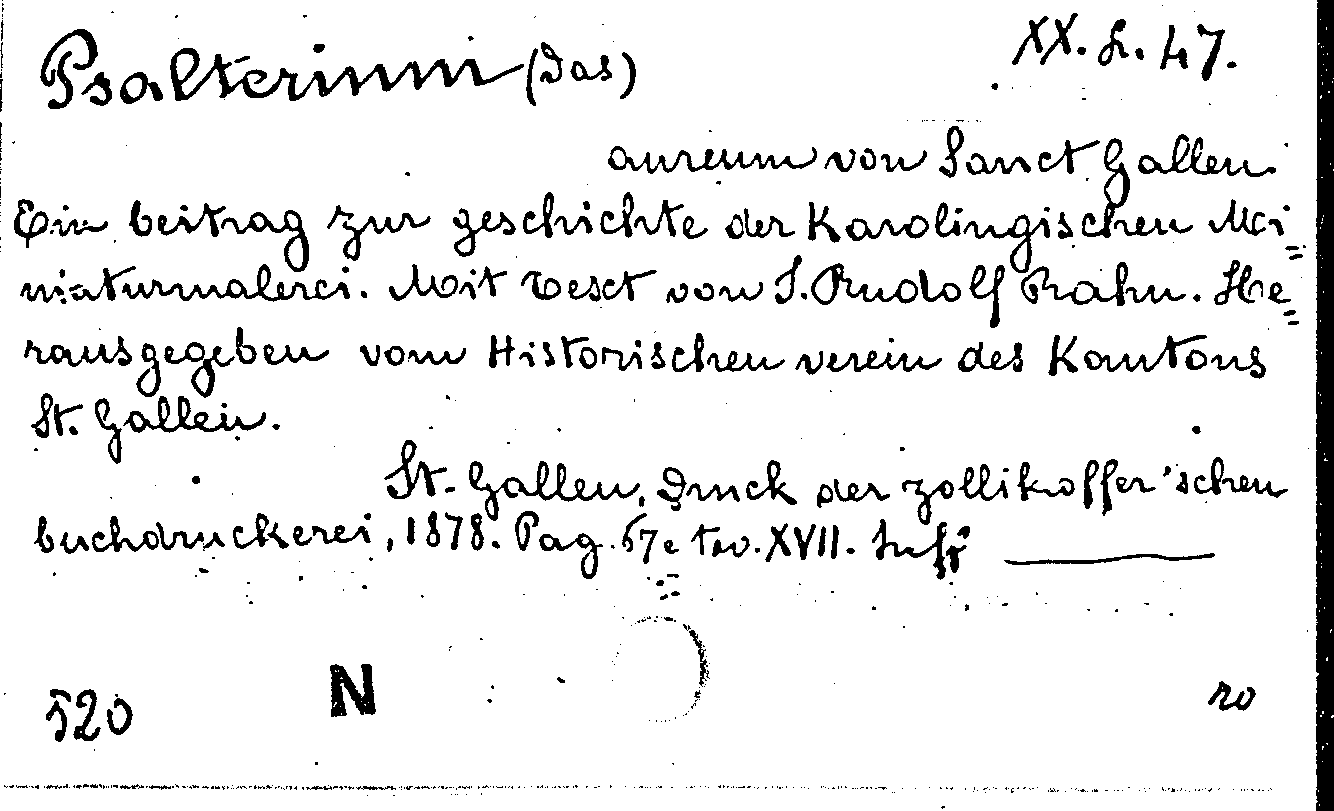 Psalterium (Das) XX. L. 47.
aureum von Sanct Gallen.
Ein beitrag zur geschichte der Karolingischen Mi=
niaturmalerei. Mit text von J. Rudolf Rahn. He=
rausgegeben vom Historischen verein des Kantons
St. Gallen.
St. Gallen, Druck der zollikoffer'schen
buchdruckerei, 1878. Pag. 67 e tav. XVII.
520 N ro